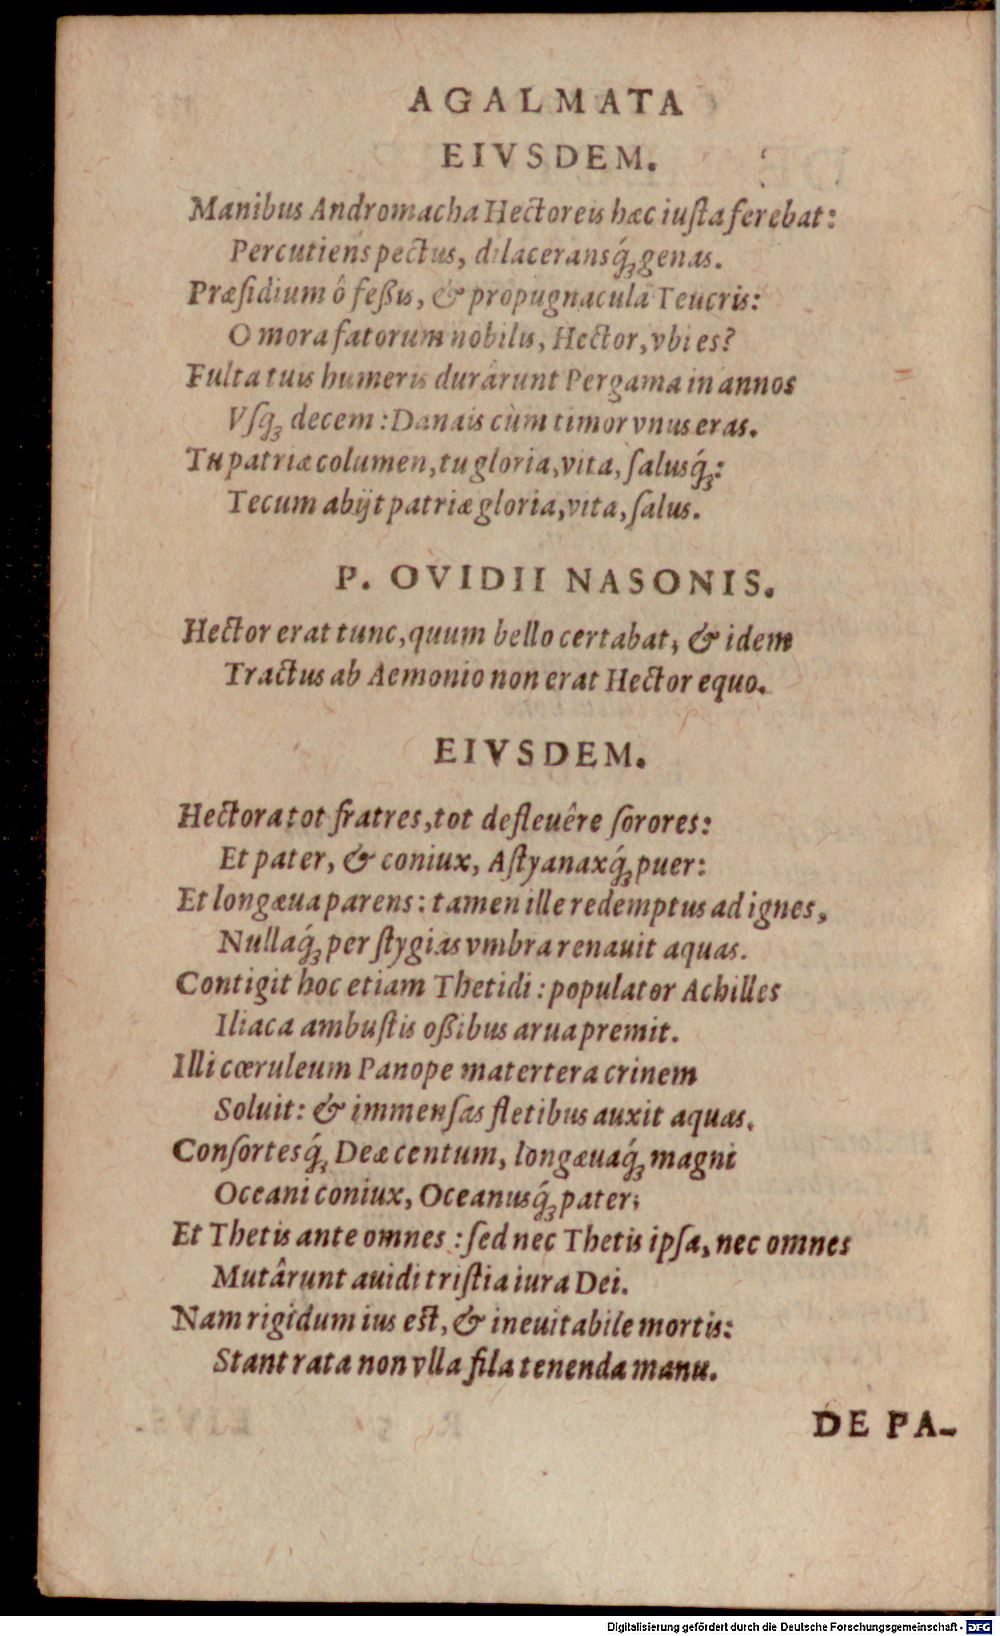 AGALMATA
EIVSDEM.
Manibus Andromacha Hectoreis hæc iuſta ferebat:
Percutiens pectus, dilaceransq́ꝫ genas.
Præſidium ô feßis, & propugnacula Teucris:
O mora fatorum nobilis, Hector, vbi es?
Fulta tuis humeris durârunt Pergama in annos
Vſqꝫ decem: Danais cùm timor vnus eras.
Tu patriæ columen, tu gloria, vita, ſalusq́ꝫ:
Tecum abijt patriæ gloria, vita, ſalus.
P. OVIDII NASONIS.
Hector erat tunc, quum bello certabat, & idem
Tractus ab Aemonio non erat Hector equo.
EIVSDEM.
Hectora tot fratres, tot defleuêre ſorores:
Et pater, & coniux, Aſtyanaxq́ꝫ puer:
Et longæua parens: tamen ille redemptus ad ignes,
Nullaq́ꝫ per ſtygias vmbra renauit aquas.
Contigit hoc etiam Thetidi: populator Achilles
Iliaca ambuſtis oßibus arua premit.
Illi cœruleum Panope matertera crinem
Soluit: & immenſas fletibus auxit aquas.
Conſortesq́ꝫ Deæ centum, longæuaq́ꝫ magni
Oceani coniux, Oceanusq́ꝫ pater;
Et Thetis ante omnes: ſed nec Thetis ipſa, nec omnes
Mutârunt auidi triſtia iura Dei.
Nam rigidum ius eſt, & ineuitabile mortis:
Stant rata non vlla fila tenenda manu.
DE PA-
Digitalisierung gefördert durch die Deutsche Forschungsgemeinschaft - DFG